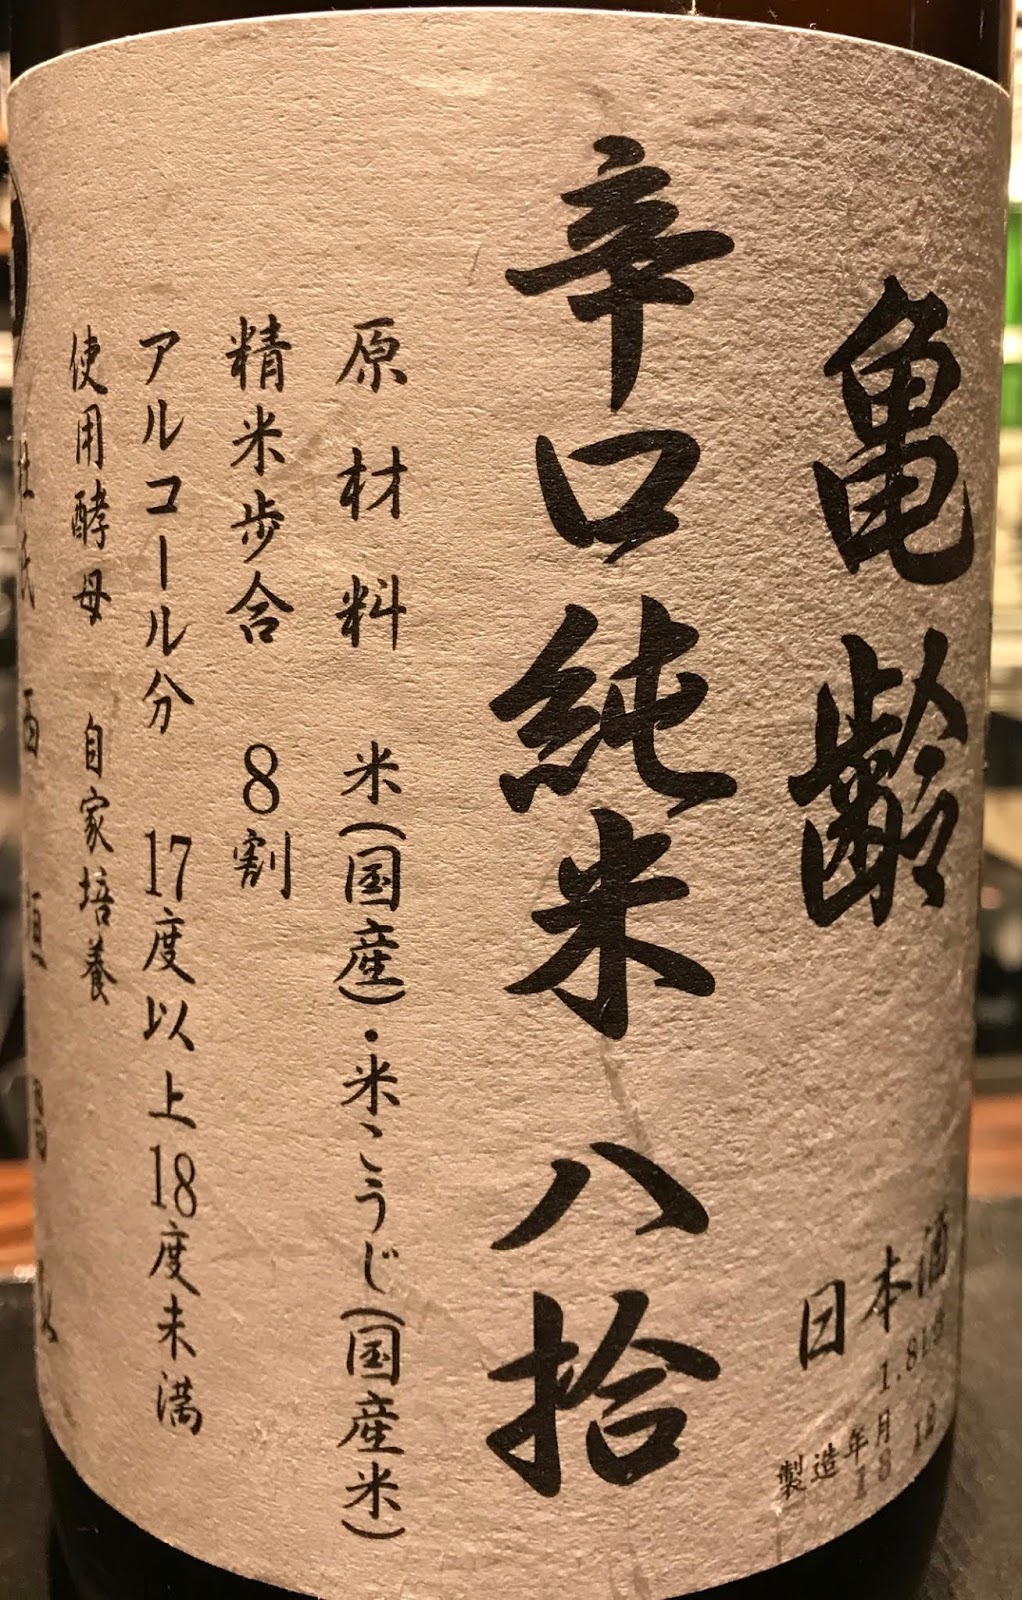 亀齢
辛口純米八拾
日本酒
1.8L詰
製造年月
18 12
原材料 米(国産)・米こうじ(国産米)
精米歩合 8割
アルコール分 17度以上18度未満
使用酵母 自家培養
杜氏 西垣昌